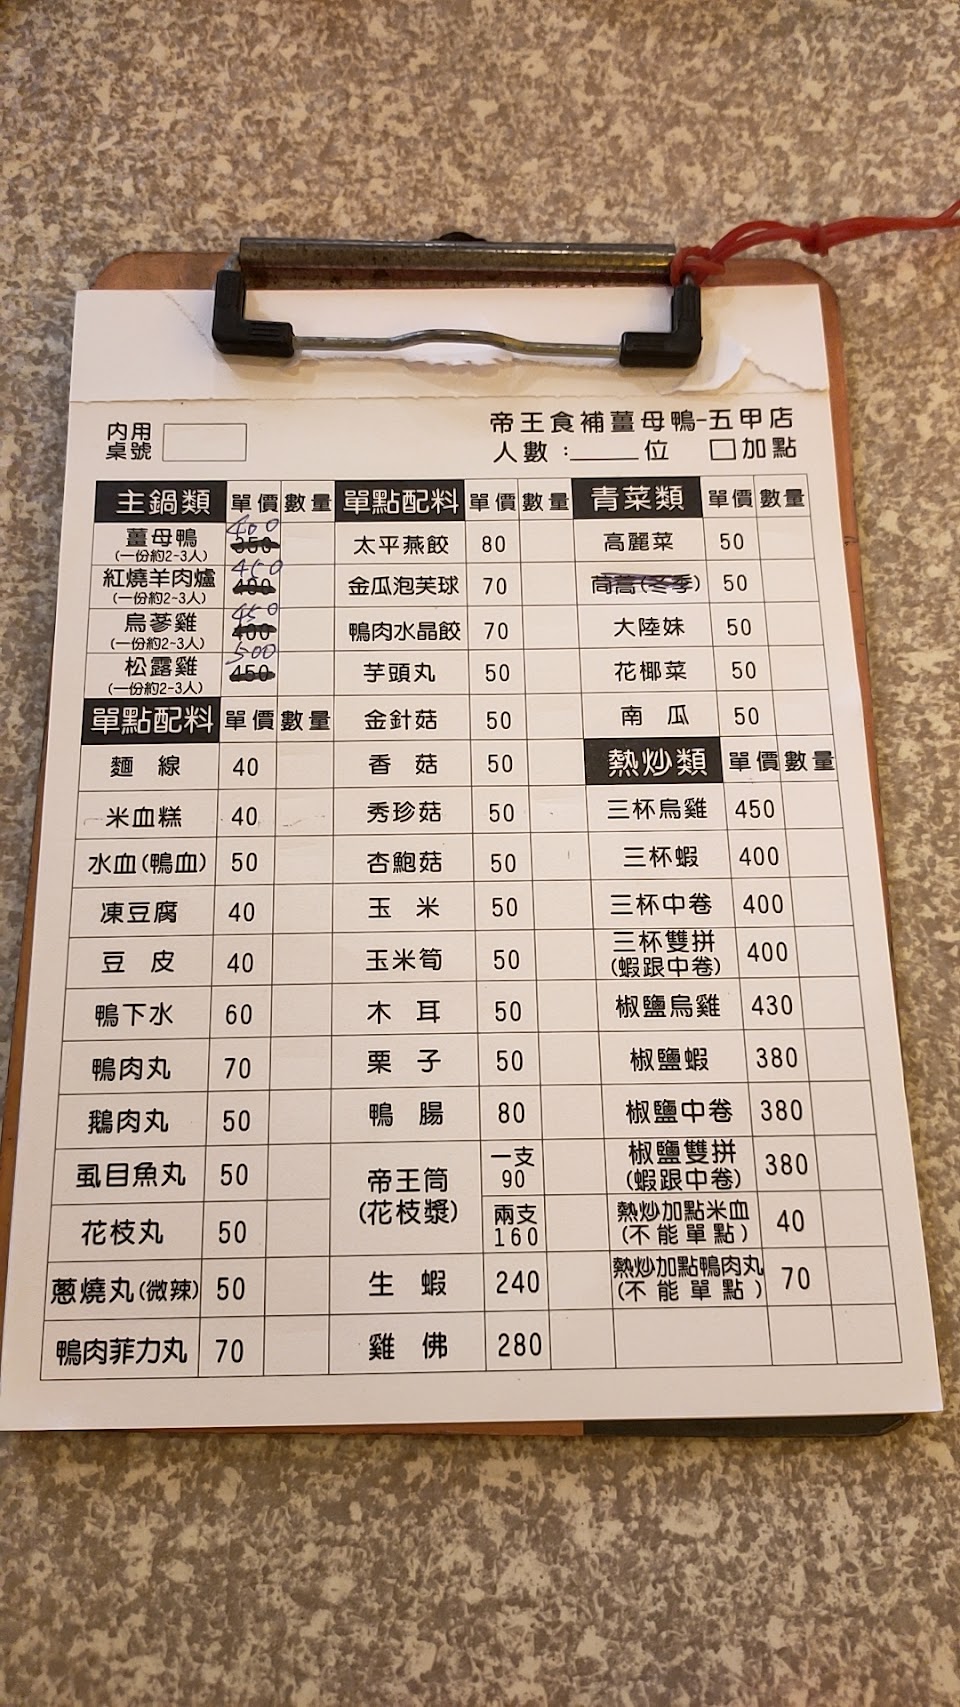 內用
桌號
帝王食補薑母鴨-五甲店
人數:_____位 □加點
主鍋類 單價 數量
薑母鴨 400 350
(一份約2-3人)
紅燒羊肉爐 450 400
(一份約2-3人)
烏蔘雞 450 400
(一份約2-3人)
松露雞 500 450
(一份約2-3人)
單點配料 單價 數量
麵線 40
米血糕 40
水血(鴨血) 50
凍豆腐 40
豆皮 40
鴨下水 60
鴨肉丸 70
鵝肉丸 50
虱目魚丸 50
花枝丸 50
蔥燒丸(微辣) 50
鴨肉菲力丸 70
單點配料 單價 數量
太平燕餃 80
金瓜泡芙球 70
鴨肉水晶餃 70
芋頭丸 50
金針菇 50
香菇 50
秀珍菇 50
杏鮑菇 50
玉米 50
玉米筍 50
木耳 50
栗子 50
鴨腸 80
帝王筒
(花枝漿)
一支
90
兩支
160
生蝦 240
雞佛 280
青菜類 單價 數量
高麗菜 50
茼蒿(冬季) 50
大陸妹 50
花椰菜 50
南瓜 50
熱炒類 單價 數量
三杯烏雞 450
三杯蝦 400
三杯中卷 400
三杯雙拼
(蝦跟中卷) 400
椒鹽烏雞 430
椒鹽蝦 380
椒鹽中卷 380
椒鹽雙拼
(蝦跟中卷) 380
熱炒加點米血
(不能單點) 40
熱炒加點鴨肉丸
(不能單點) 70